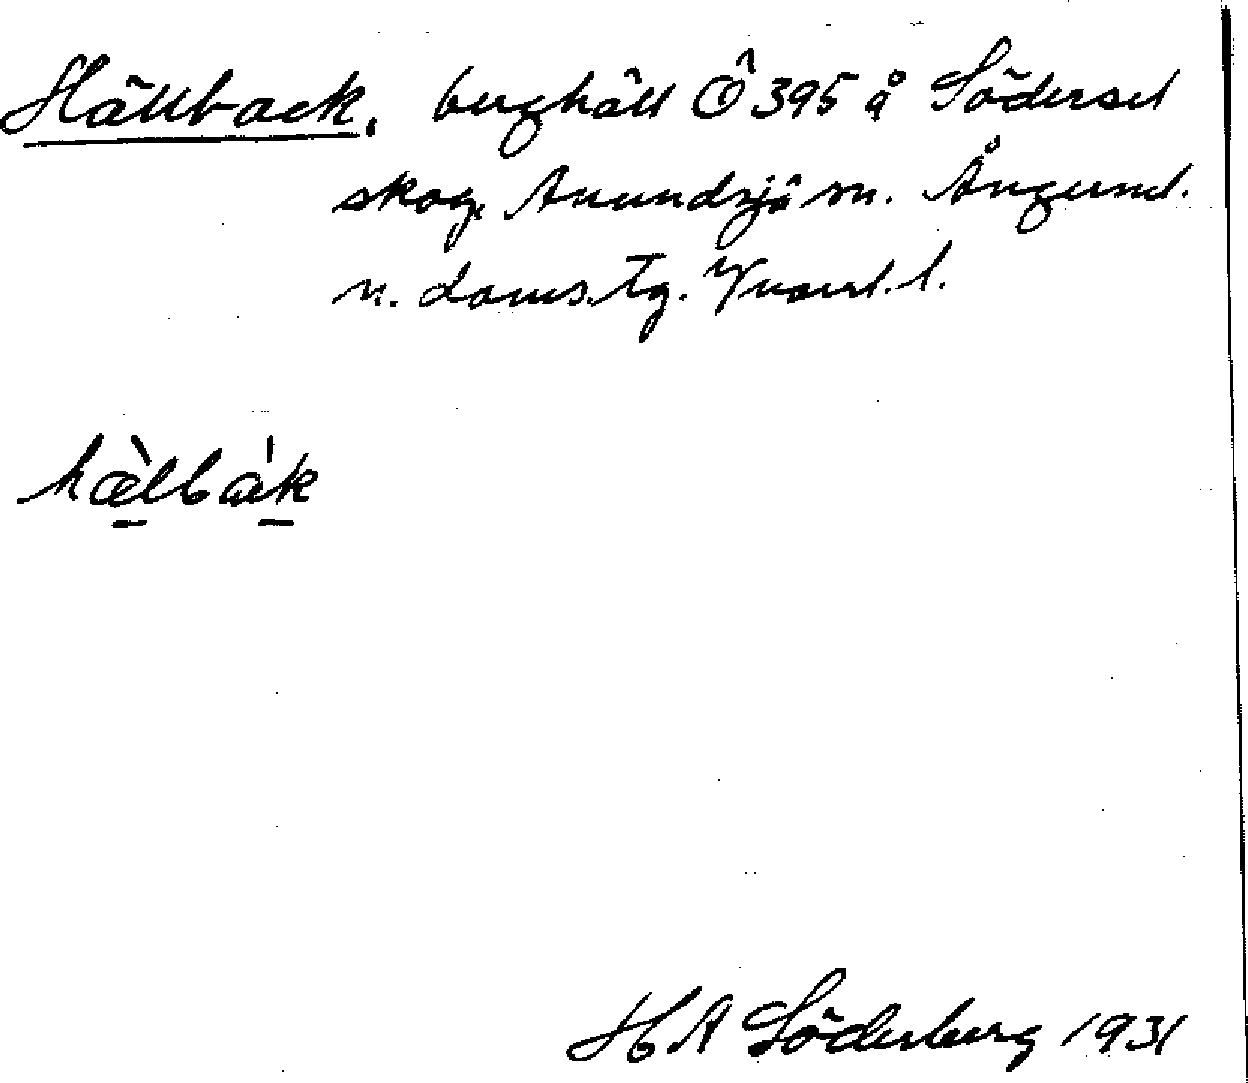 Hällback, berghäll Ö 395 å Södersel
skog, Anundsjö sn. Ångerml.
n. doms. tg. Vnorrl. l.
hæ̀lbàk
H A Söderberg 1931